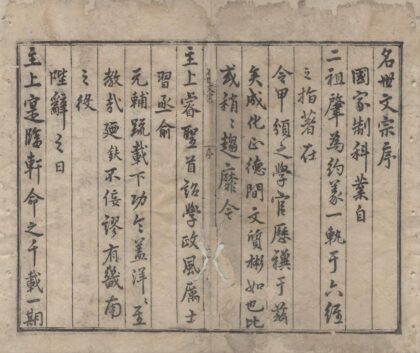 名世文宗序
國家制科業自
二祖肇為約彖一軌于六經
之指著在
令甲頒之學官歷禩于茲
矣成化正德間文質彬如也比
或稍〻趨靡今
主上睿聖首詔學政風厲士
習亟俞
元輔疏載下功令蓋洋〻至
教哉廼鈇不佞謬有畿南
之役
陛辭之日
主上寔臨軒命之千載一期